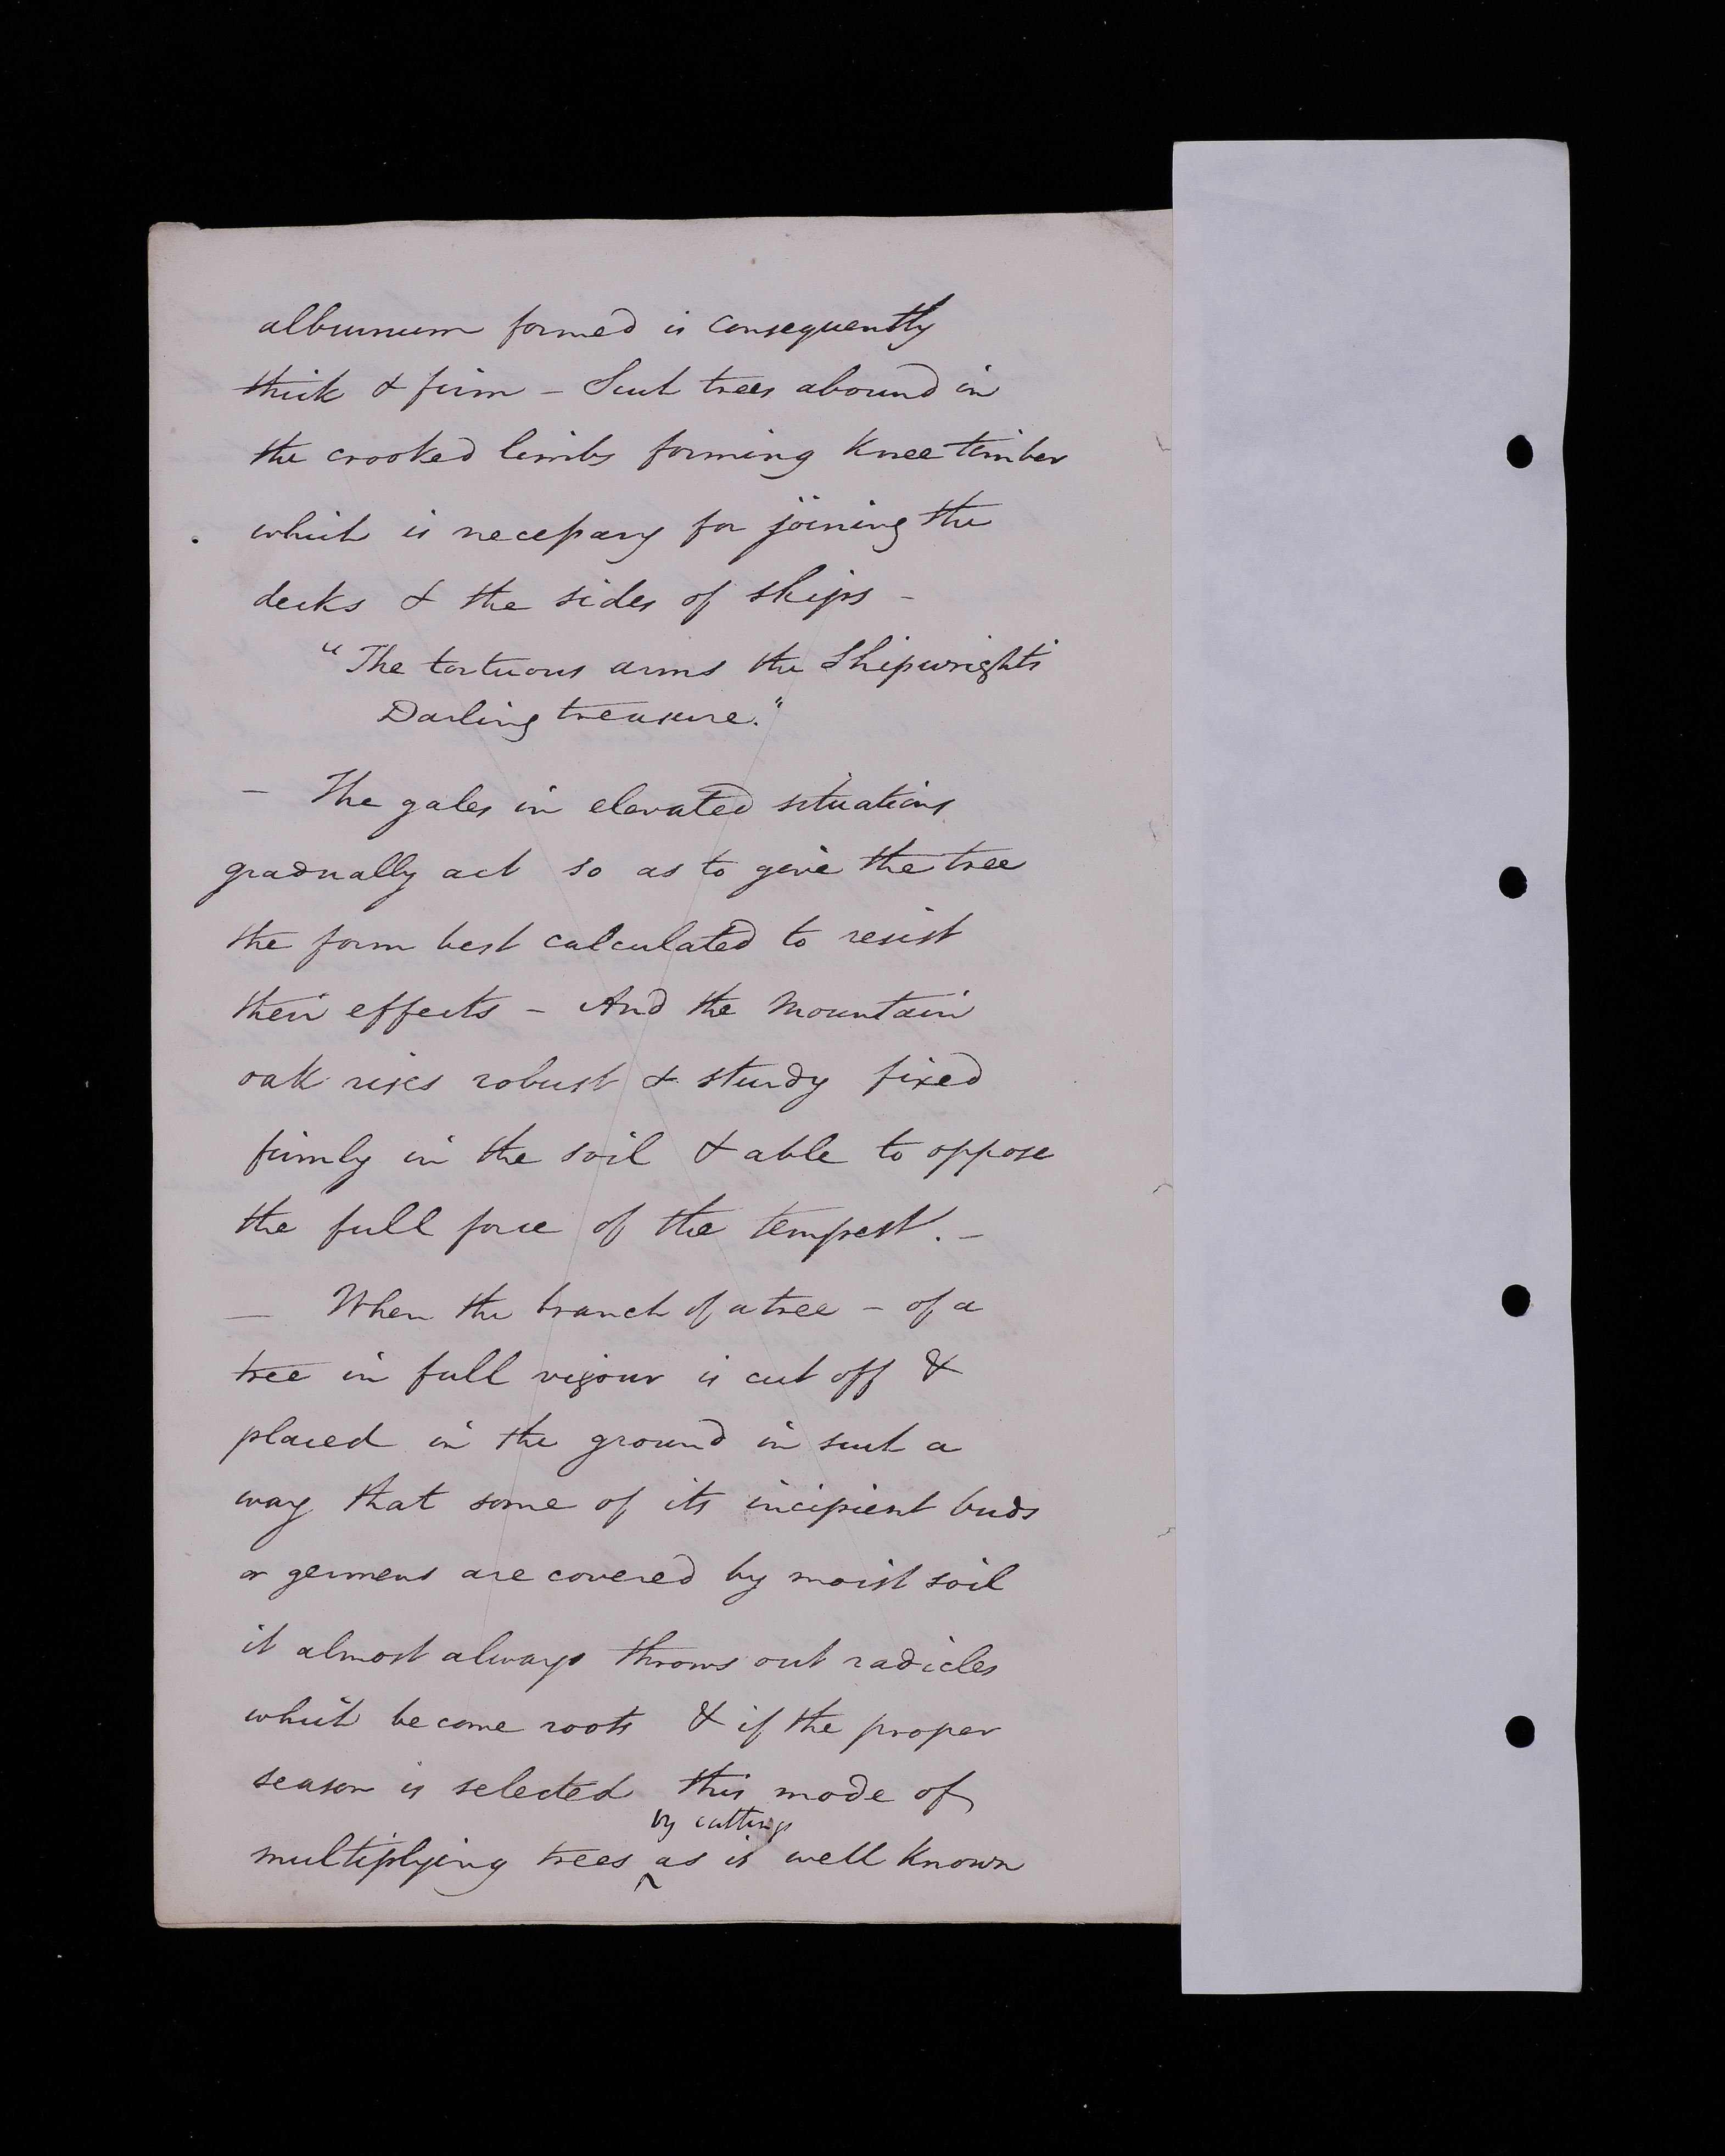 alburnum formed is consequently
thick & firm - Such trees abound in
the crooked limbs forming knee timber
which is necessary for joining the
decks & the sides of ships -
"The tortuous arms the Shipwrights
Darling treasure."
- The gales in elevated situations
gradually act so as to give the tree
the form best calculated to resist
their effects - And the Mountain
oak rises robust & sturdy fixed
firmly in the soil & able to oppose
the full force of the tempest. -
- When the branch of a tree - of a
tree in full vigour is cut off &
placed in the ground in such a
way that some of its incipient buds
or germens are covered by moist soil
it almost always throws out radicles
which become roots & if the proper
season is selected this mode of
by cuttings
multiplying trees ^ as is well known